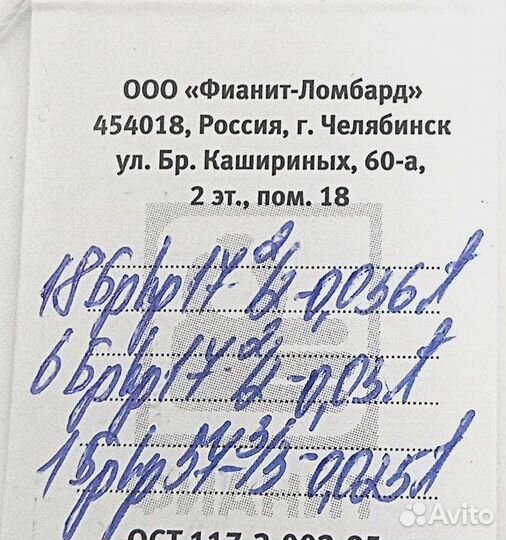 ООО «Фианит-Ломбард»
454018, Россия, г. Челябинск
ул. Бр. Кашириных, 60-а,
2 эт., пом. 18
18 Бр Кр 17-2/2-0,036
6 Бр Кр 17-2/2-0,03
1 Бр Кр 57-3/3-0,025
ОСТ 117-3-002-95
Avito